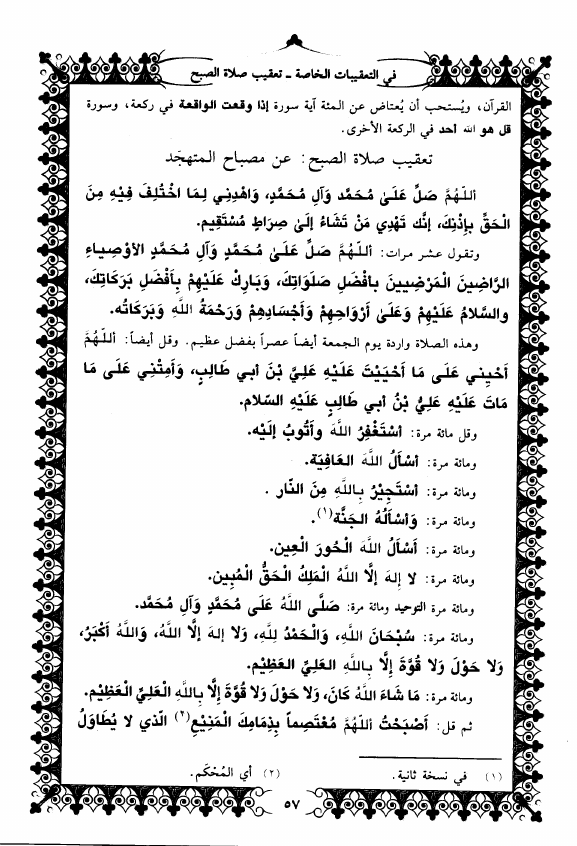 في التعقيبات الخاصة ـ تعقيب صلاة الصبح
القرآن، ويُستحب أن يُعتاض عن المئة آية سورة إذا وقعت الواقعة في ركعة، وسورة
قل هو الله أحد في الركعة الأخرى.
تعقيب صلاة الصبح: عن مصباح المتهجّد
أللهُمَّ صَلِّ عَلىٰ مُحَمَّد وَآلِ مُحَمَّد، وَاهْدِنِي لِمَا اخْتُلِفَ فِيْهِ مِنَ
الْحَقِّ بِإذْنِكَ، إنَّكَ تَهْدِي مَنْ تَشَاءُ إلىٰ صِرَاطٍ مُسْتَقِيم.
وتقول عشر مرات: أللهُمَّ صَلِّ عَلىٰ مُحَمَّدٍ وَآلِ مُحَمَّدٍ الأوْصِياءِ
الرَّاضِينَ الْمَرْضِيينَ بِأفْضَلِ صَلَوَاتِكَ، وَبَارِكْ عَلَيْهِمْ بِأفْضَلِ بَرَكَاتِكَ،
والسَّلامُ عَلَيْهِمْ وَعَلىٰ أرْوَاحِهِمْ وَأجْسَادِهِمْ وَرَحْمَةُ اللهِ وَبَرَكَاتُه.
وهذه الصلاة واردة يوم الجمعة أيضاً عصراً بفضل عظيم. وقل أيضاً: أللهُمَّ
أحْيِنِي عَلَى مَا أحْيَيْتَ عَلَيْهِ عَلِيَّ بْنَ أبي طَالِبٍ، وَأمِتْنِي عَلَى مَا
مَاتَ عَلَيْهِ عَلِيُّ بْنُ أبي طَالِبٍ عَلَيْهِ السّلام.
وقل مائة مرة: أسْتَغْفِرُ اللهَ وأتُوبُ إلَيْه.
ومائة مرة: أسْألُ اللهَ العَافِيَة.
ومائة مرة: أسْتَجِيْرُ بِاللهِ مِنَ النّار .
ومائة مرة: وَأسْألُهُ الجَنَّة(١).
ومائة مرة: أسْألُ اللهَ الْحُورَ العِين.
ومائة مرة: لا إلهَ إلَّا اللهُ المَلِكُ الحَقُّ المُبِين.
ومائة مرة التوحيد ومائة مرة: صَلَّى اللهُ عَلَى مُحَمَّدٍ وَآلِ مُحَمَّد.
ومائة مرة: سُبْحَانَ اللهِ، وَالْحَمْدُ لِلهِ، وَلا إلهَ إلَّا اللهُ، وَاللهُ أكْبَرُ،
وَلا حَوْلَ وَلا قُوَّةَ إلَّا بِاللهِ العَلِيِّ العَظِيْم.
ومائة مرة: مَا شَاءَ اللهُ كَانَ، وَلا حَوْلَ وَلا قُوَّةَ إلَّا بِاللهِ الْعَلِيِّ الْعَظِيْم.
ثم قل: أصْبَحْتُ أللهُمَّ مُعْتَصِماً بِذِمَامِكَ الْمَنِيْعِ(٢) الّذي لا يُطَاوَلُ
(١) في نسخة ثانية.
(٢) أي المُحْكَم.
٥٧